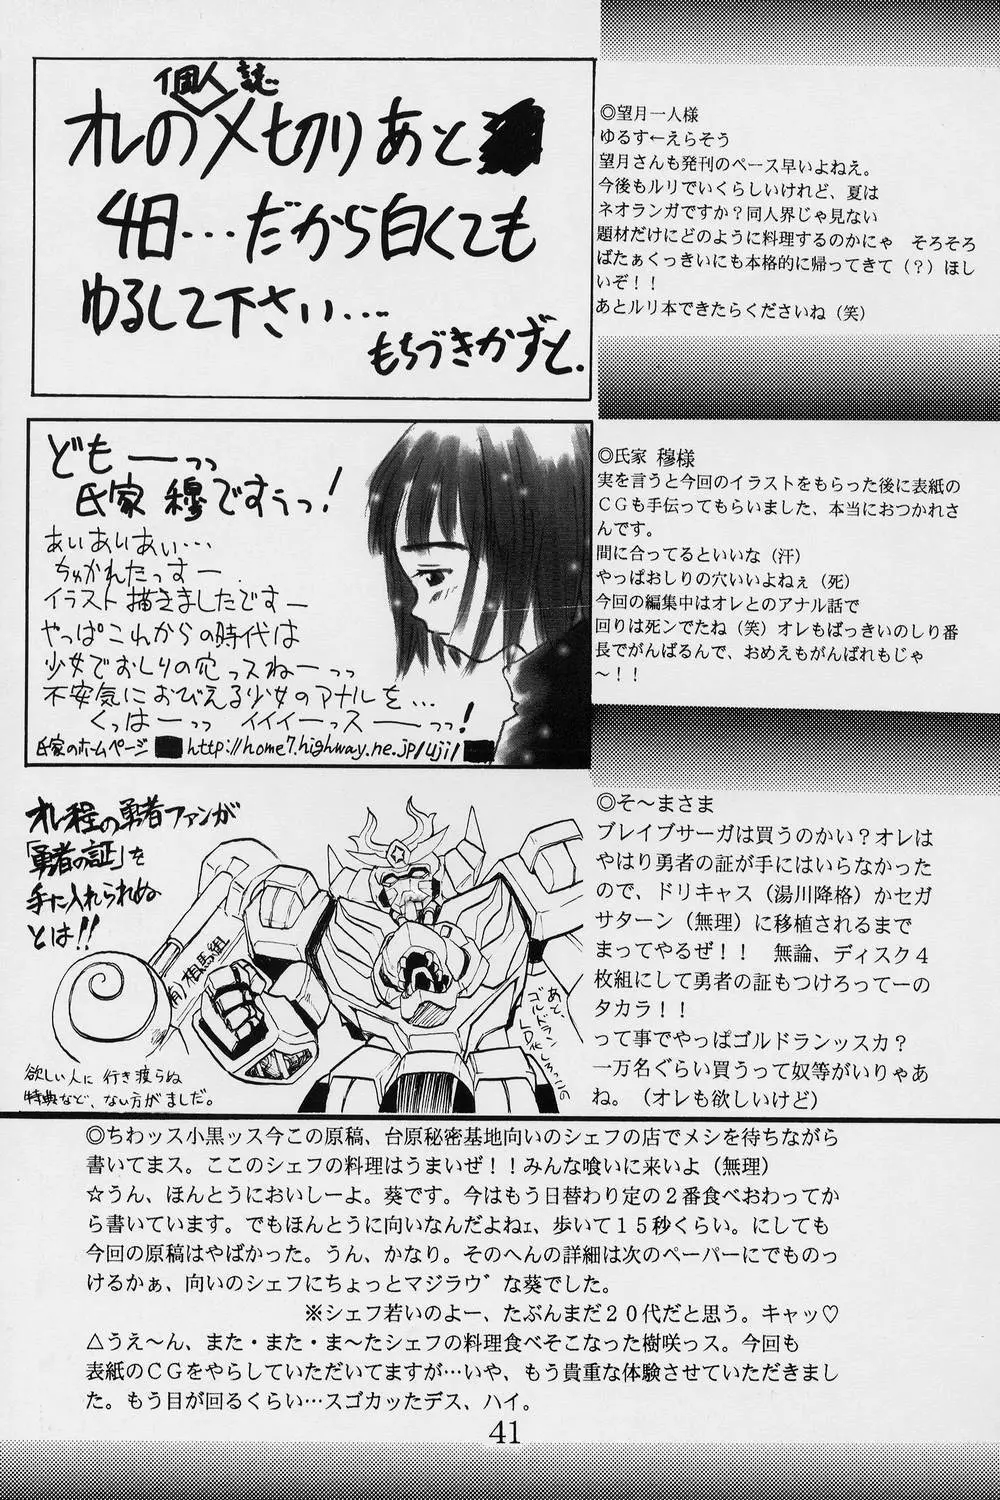 個人誌
オレの〆切りあと
4日…だから白くても
ゆるして下さい…
もちづきかずと.
◎望月一人様
ゆるす←えらそう
望月さんも発刊のペース早いよねえ。
今後もルリでいくらしいけれど、夏は
ネオランガですか？同人界じゃ見ない
題材だけにどのように料理するのかにゃ　そろそろ
ばたぁくっきいにも本格的に帰ってきて（？）ほし
いぞ！！
あとルリ本できたらくださいね（笑）
どもーっっ
氏家 穆ですぅっ！
あぃあぃあぃ…
ちゅかれたっすー
イラスト描きましたですー
◎氏家 穆様
実を言うと今回のイラストをもらった後に表紙の
ＣＧも手伝ってもらいました、本当におつかれさ
んです。
間に合ってるといいな（汗）
オレ程の勇者ファンが
「勇者の証」を
手に入れられぬ
とは!!
㈲相馬組
あと、
ゴルドラン
欲しい人に行き渡らぬ
特典など、ない方がましだ。
◎そ～まさま
ブレイブサーガは買うのかい？オレは
やはり勇者の証が手にはいらなかった
ので、ドリキャス（湯川降格）かセガ
サターン（無理）に移植されるまで
まってやるぜ！！　無論、ディスク４
枚組にして勇者の証もつけろってーの
タカラ！！
って事でやっぱゴルドランッスカ？
一万名ぐらい買うって奴等がいりゃあ
ね。（オレも欲しいけど）
◎ちわッス小黒ッス今この原稿、台原秘密基地向いのシェフの店でメシを待ちながら
書いてまス。ここのシェフの料理はうまいぜ！！みんな喰いに来いよ（無理）
☆うん、ほんとうにおいしーよ。葵です。今はもう日替わり定の２番食べおわってか
ら書いています。でもほんとうに向いなんだよねｪ、歩いて１５秒くらい。にしても
今回の原稿はやばかった。うん、かなり。そのへんの詳細は次のペーパーにでものっ
けるかぁ、向いのシェフにちょっとマジラヴ゛な葵でした。
※シェフ若いのよー、たぶんまだ２０代だと思う。キャッ♡
△うえ～ん、また・また・ま～たシェフの料理食べそこなった樹咲っス。今回も
表紙のＣＧをやらしていただいてますが…いや、もう貴重な体験させていただきまし
た。もう目が回るくらい…スゴカッたデス、ハイ。
41